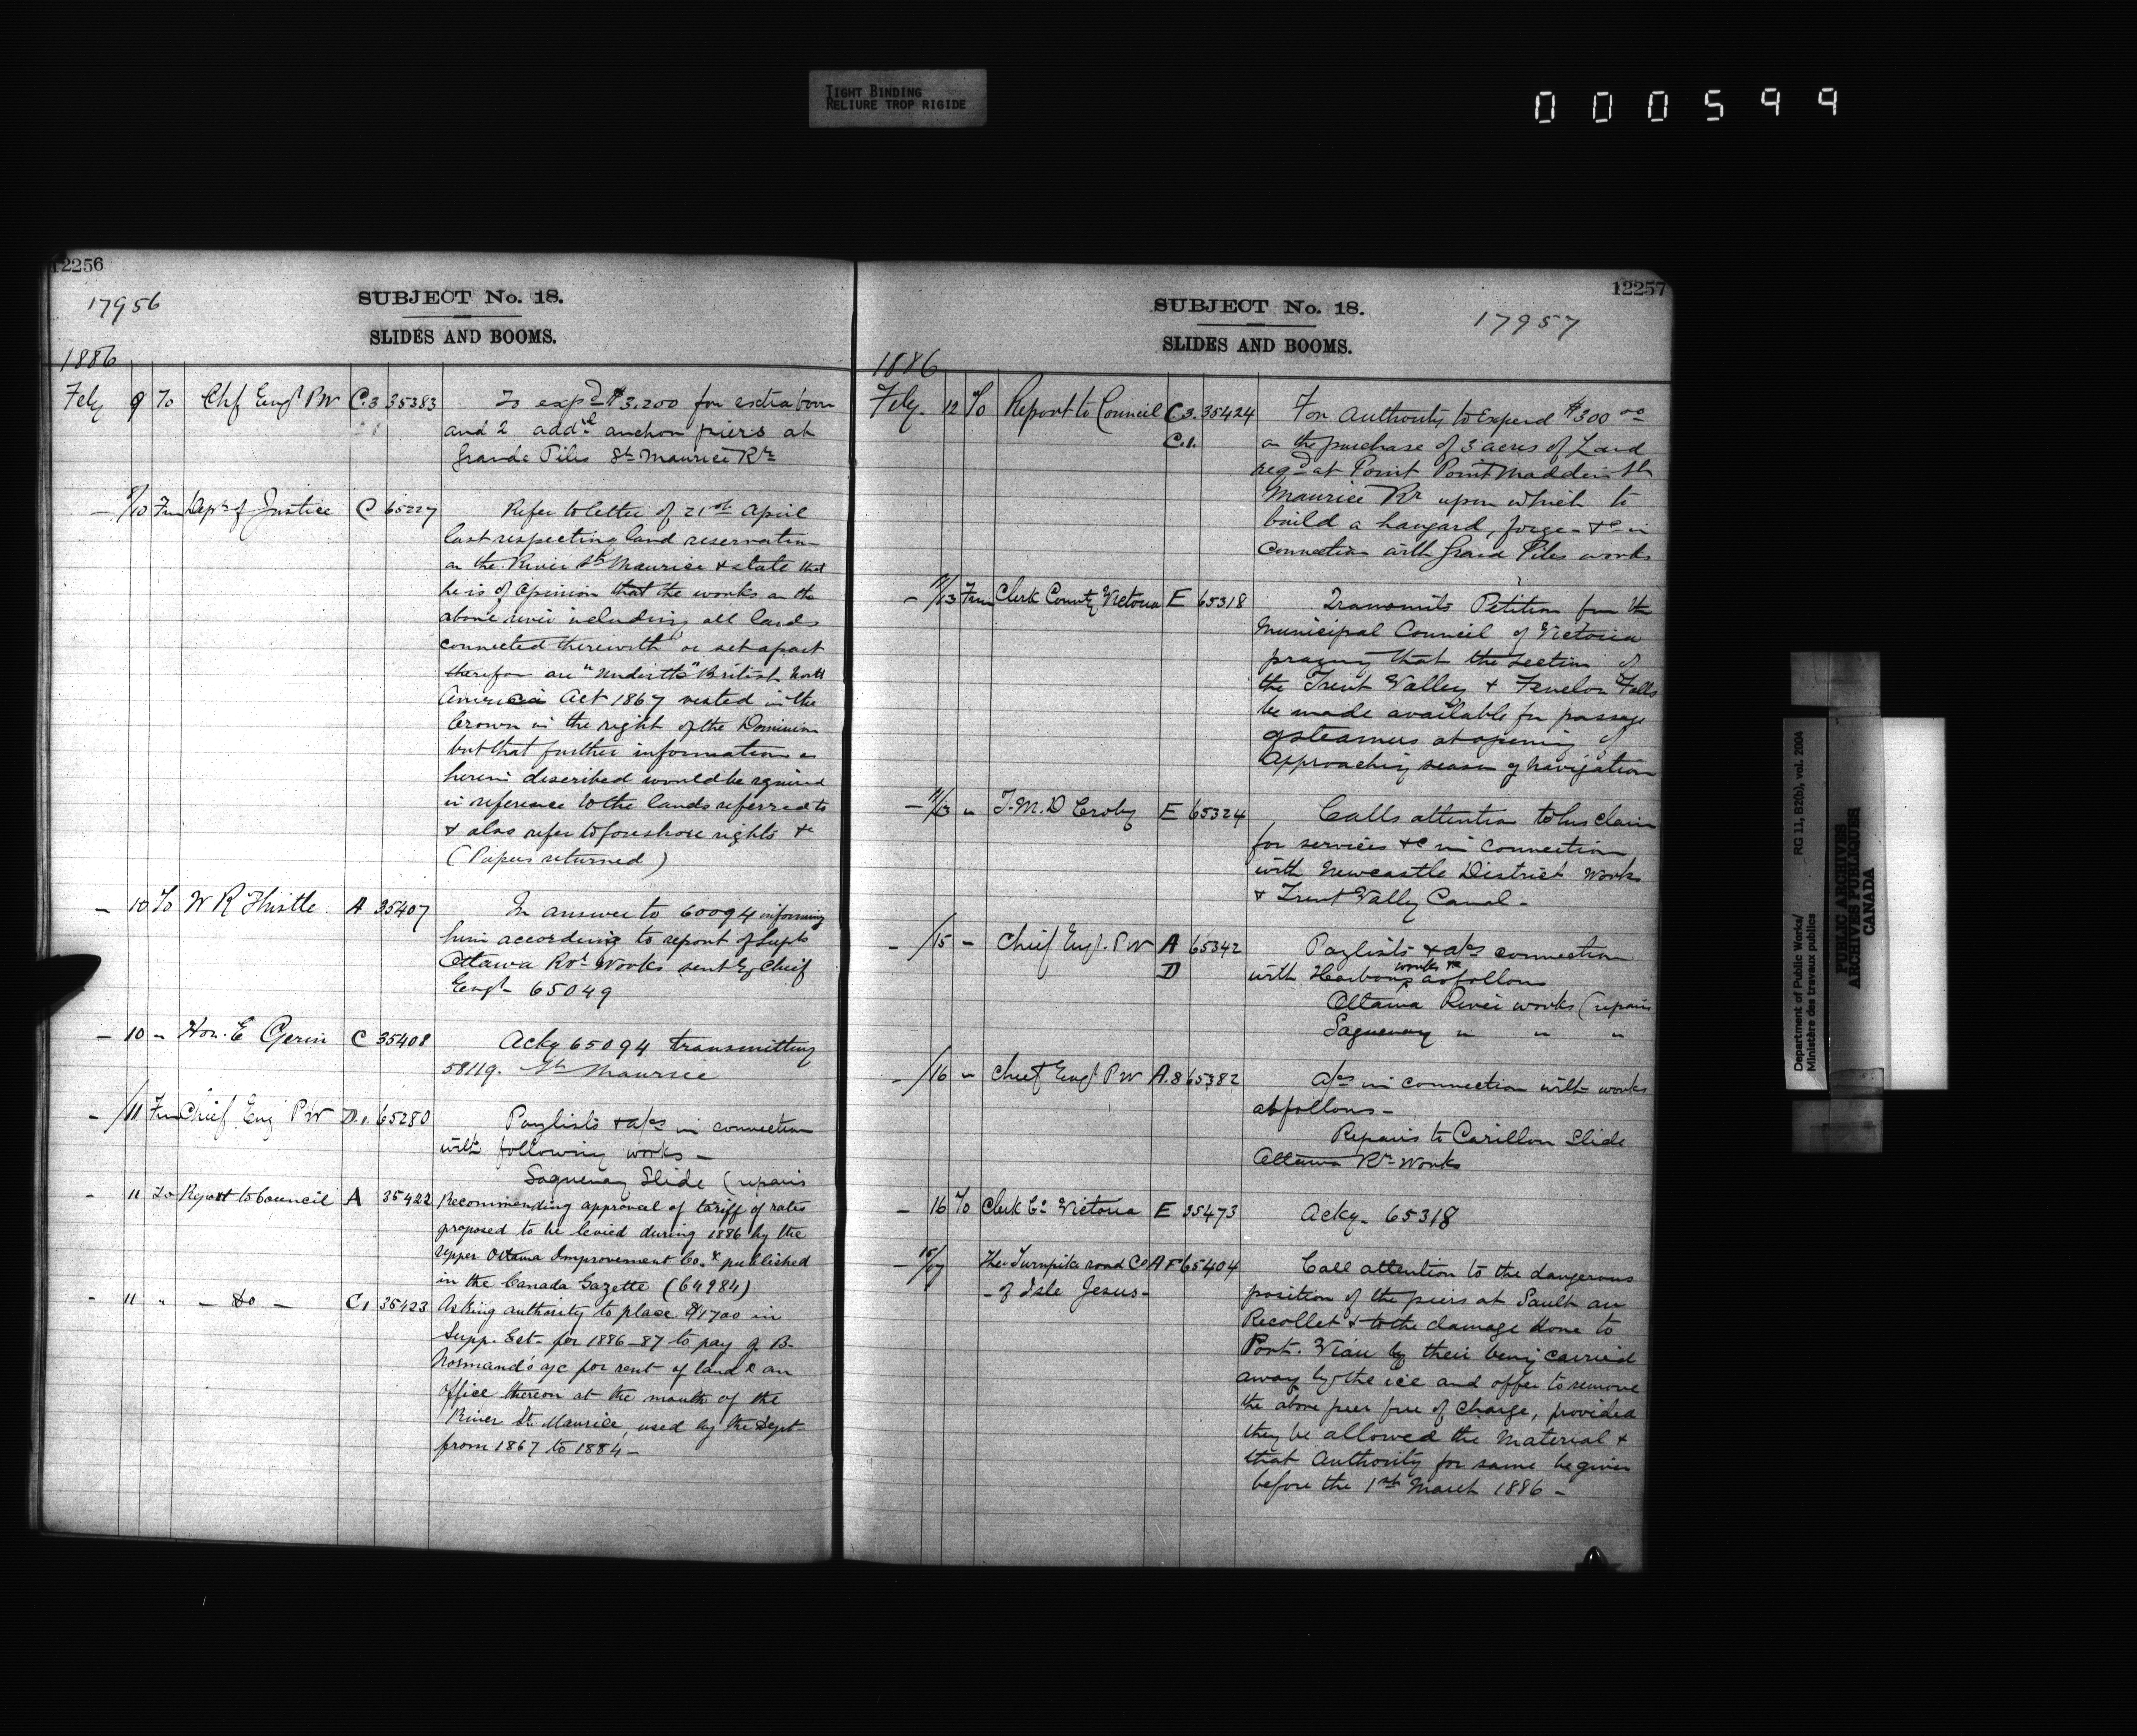 TIGHT BINDING
RELIURE TROP RIGIDE
000599
12256
17956
SUBJECT No. 18.
SLIDES AND BOOMS.
1886
Feby 9 To Chf Engr PW C.3 35383 To expd $3,200 for extra boom
and 2 addl anchor piers at
Grande Piles St Maurice Rr
— 9/10 Frm Dept of Justice C 65227 Refer to letter of 21st April
last respecting land reservation
on the River St Maurice & state that
he is of opinion that the works on the
above river including all lands
connected therewith or set apart
therefor are "under the" British North
America Act 1867 vested in the
Crown in the right of the Dominion
but that further information as
herein described would be required
in reference to the lands referred to
& also refer to foreshore rights &c
(Papers returned)
— 10 To W R Thistle A 35407 In answer to 60094 informing
him according to report of Supt
Ottawa Rvr Works sent by Chief
Engr 65049
— 10 " Hon. E Gerin C 35408 Acky 65094 transmitting
58119. St Maurice
— /11 Frm Chief Eng PW D.1 65280 Paylists & a/cs in connection
with following works —
Saguenay Slide (repairs
- 11 To Report to Council A 35422 Recommending approval of tariff of rates
proposed to be levied during 1886 by the
Upper Ottawa Improvement Co. & published
in the Canada Gazette (64984)
- 11 " — do — C1 35423 Asking authority to place $1700 in
Supp. Est- for 1886-87 to pay G B-
Normand's a/c for rent of land & an
office thereon at the mouth of the
River St. Maurice, used by the Dept-
from 1867 to 1884 —
12257
17957
SUBJECT No. 18.
SLIDES AND BOOMS.
1886
Feby. 12 To Report to Council C3. 35424 For Authority to Expend $300 00
C.1. on the purchase of 3 acres of Land
reqd at Point Point Madden St
Maurice Rr upon which to
build a hangard, forge &c in
connection with Grand Piles works
— 11/13 Frm Clerk County Victoria E 65318 Transmits Petition from the
Municipal Council of Victoria
praying that the section of
the Trent Valley & Fenelon Falls
be made available for passage
of steamers at opening of
Approaching season of navigation
— 11/13 " T. M. D Croly E 65324 Calls attention to his claim
for services &c in connection
with Newcastle District Works
& Trent Valley Canal -
— /15 - Chief Engr. PW A 65342 Paylists & a/cs connection
D with Harbour works &c as follows
Ottawa River works (repairs
Saguenay " " "
— /16 - Chief Engr PW A.8 65382 a/cs in connection with works
as follows -
Repairs to Carillon Slide
Ottawa Rr Works
— 16 To Clerk Co Victoria E 35473 Acky. 65318
— 15/17 The Turnpike road Co A F 65404 Call attention to the dangerous
- of Isle Jesus - position of the piers at Sault au
Recollet & to the damage done to
Pont. Viau by their being carried
away by the ice and offer to remove
the above pier free of charge, provided
they be allowed the material &
that Authority for same be given
before the 1st March 1886 -
Department of Public Works/ RG 11, B2(b), vol. 2004
Ministère des travaux publics
PUBLIC ARCHIVES
ARCHIVES PUBLIQUES
CANADA